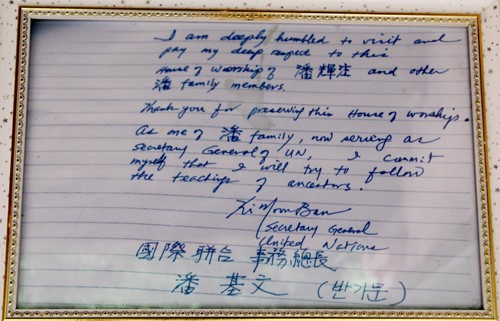 I am deeply humbled to visit and
pay my deep respect to this
House of worship of 潘輝泣 and other
潘 family members.
Thank you for preserving this House of worship.
As one of 潘 family, now serving as
Secretary General of UN, I commit
myself that I will try to follow
the teachings of ancestors.
Ki Moon Ban
Secretary General
United Nations
國際聯合 事務總長
潘基文 (반기문)